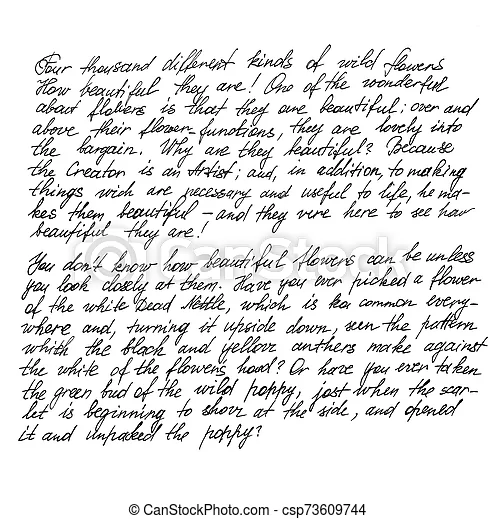 Four thousand different kinds of wild flowers
How beautiful they are! One of the wonderful
about flowers is that they are beautiful; over and
above their flower-functions, they are lovely into
the bargain. Why are they beautiful? Because
the Creator is an Artist; and, in addition, to making
things wich are necessary and useful to life, he ma-
kes them beautiful – and they vere here to see how
beautiful they are!
You don't know how beautiful flowers can be unless
you look closely at them. Have you ever picked a flower
of the white Dead Nettle, which is common every-
where and, turning it upside down, seen the pattern
whith the black and yellow anthers make against
the white of the flowers hood? Or have you ever taken
the green bud of the wild poppy, jast when the scar-
let is beginning to show at the side, and opened
it and unpacked the poppy?
© CanStockPhoto.com - csp73609744